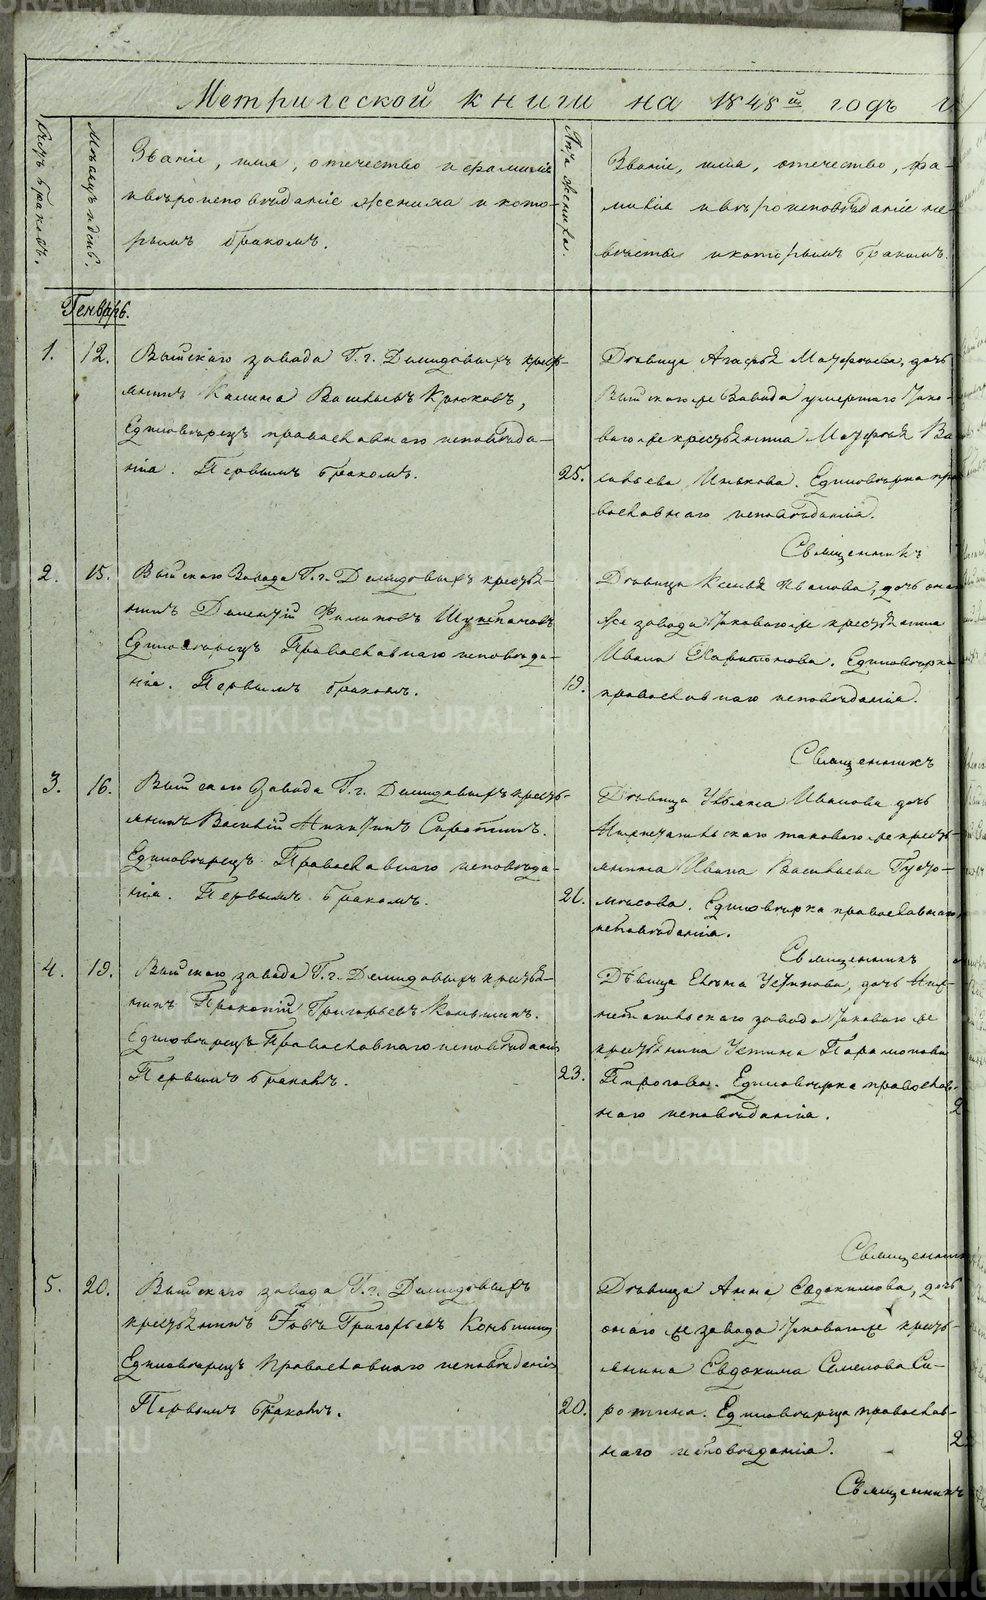 Метрической книги на 1848й годъ
Счетъ браковъ.
Мѣсяцъ и день.
Званіе, имя, отечество и фамилія
и вѣроисповѣданіе жениха и кото-
рымъ бракомъ.
Лѣта жениха.
Званіе, имя, отечество, фа-
милія и вѣроисповѣданіе не-
вѣсты и которымъ бракомъ.
Генварь.
1. 12. Выйскаго завода Г. г. Демидовыхъ кресть-
янинъ Калина Васильевъ Крюковъ,
Единовѣрецъ православнаго исповѣда-
нія. Первымъ бракомъ.
25.
Дѣвица Агафья Матфѣева, дочь
Выйскаго же Завода умершаго тако-
ваго же крестьянина Матфѣя Ва
сильева Инькова. Единовѣрка пра
вославнаго исповѣданія.
Священникъ
2. 15. Выйскаго Завода Г. г. Демидовыхъ кресть-
янинъ Филиповъ
Единовѣрецъ Православнаго исповѣда-
нія. Первымъ бракомъ.
19.
Дѣвица Ксенья Иванова, дочь онаго
же завода таковаго же крестьянина
Ивана Харитонова. Единовѣрка
православнаго исповѣданія.
Священникъ
3. 16. Выйскаго Завода Г. г. Демидовыхъ кресть-
янинъ Василій Никитинъ Сиротинъ.
Единовѣрецъ Православнаго исповѣда-
нія. Первымъ бракомъ.
21.
Дѣвица Ульяна Иванова дочь
Нижнетагильскаго таковаго же кресть-
янина Ивана Васильева
Единовѣрка православнаго
исповѣданія.
Священникъ
4. 19. Выйскаго завода Г. г. Демидовыхъ кресть-
янинъ Прокопій Григорьевъ Коньшинъ.
Единовѣрецъ Православнаго исповѣданія
Первымъ бракомъ.
23.
Дѣвица Елѣна Устинова, дочь Ниж-
нетагильскаго завода таковаго же
крестьянина Устина Парамонова
Пирогова. Единовѣрка православ-
наго исповѣданія.
2
Священникъ
5. 20. Выйскаго завода Г. г. Демидовыхъ
крестьянинъ Іовъ Григорьевъ Коньшинъ
Единовѣрецъ Православнаго исповѣданія
Первымъ бракомъ.
20.
Дѣвица Анна Евдокимова, дочь
онаго же завода таковаго же кресть-
янина Евдокима Семенова Си-
ротина. Единовѣрца православ-
наго исповѣданія.
22
Священникъ
METRIKI.GASO-URAL.RU